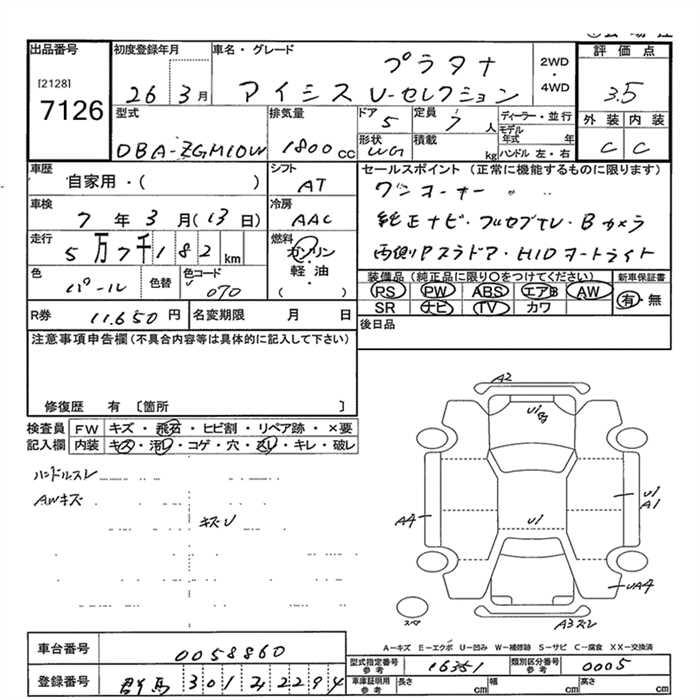 出品番号
[2128]
7126
初度登録年月
26 3月
車名・グレード
プラタナ
アイシス U-セレクション
2WD
・
4WD
評価点
3.5
外装 内装
C C
型式
DBA-ZGM10W
排気量
1800cc
ドア
5
定員
7人
形状
WG
積載
kg
ディーラー・並行
モデル
年式 年
ハンドル 左・右
車歴
自家用・( )
シフト
AT
車検
7年3月(13日)
冷房
AAC
走行
5万7千182km
燃料
ガソリン
軽油
・
( )
色
パール
色替
色コード
070
セールスポイント(正常に機能するものに限ります)
ワンオーナー
純正ナビ・フルセグTV・Bカメラ
両側Pスラドア・HIDオートライト
装備品(純正品に限り○をつけてください)
PS PW ABS エアB AW
SR ナビ TV カワ
新車保証書
有・無
R券 11,650円
名変期限 月 日
後日品
注意事項申告欄(不具合内容等は具体的に記入して下さい)
修復歴 有 〔箇所 〕
検査員
記入欄
FW キズ・飛石・ヒビ割・リペア跡・×要
内装 キズ・汚レ・コゲ・穴・スレ・キレ・破レ
ハンドルスレ
AWキズ
キズU
A2
U1
A4
U1
U1
A1
UA4
スペア
A3スレ
A=キズ E=エクボ U=凹み W=補修跡 S=サビ C=腐食 XX=交換済
車台番号 0058860
登録番号 群馬 301 2294
型式指定番号
参考
16351
類別区分番号
参考
0005
車庫証明用
参考
長さ cm 幅 cm 高さ cm